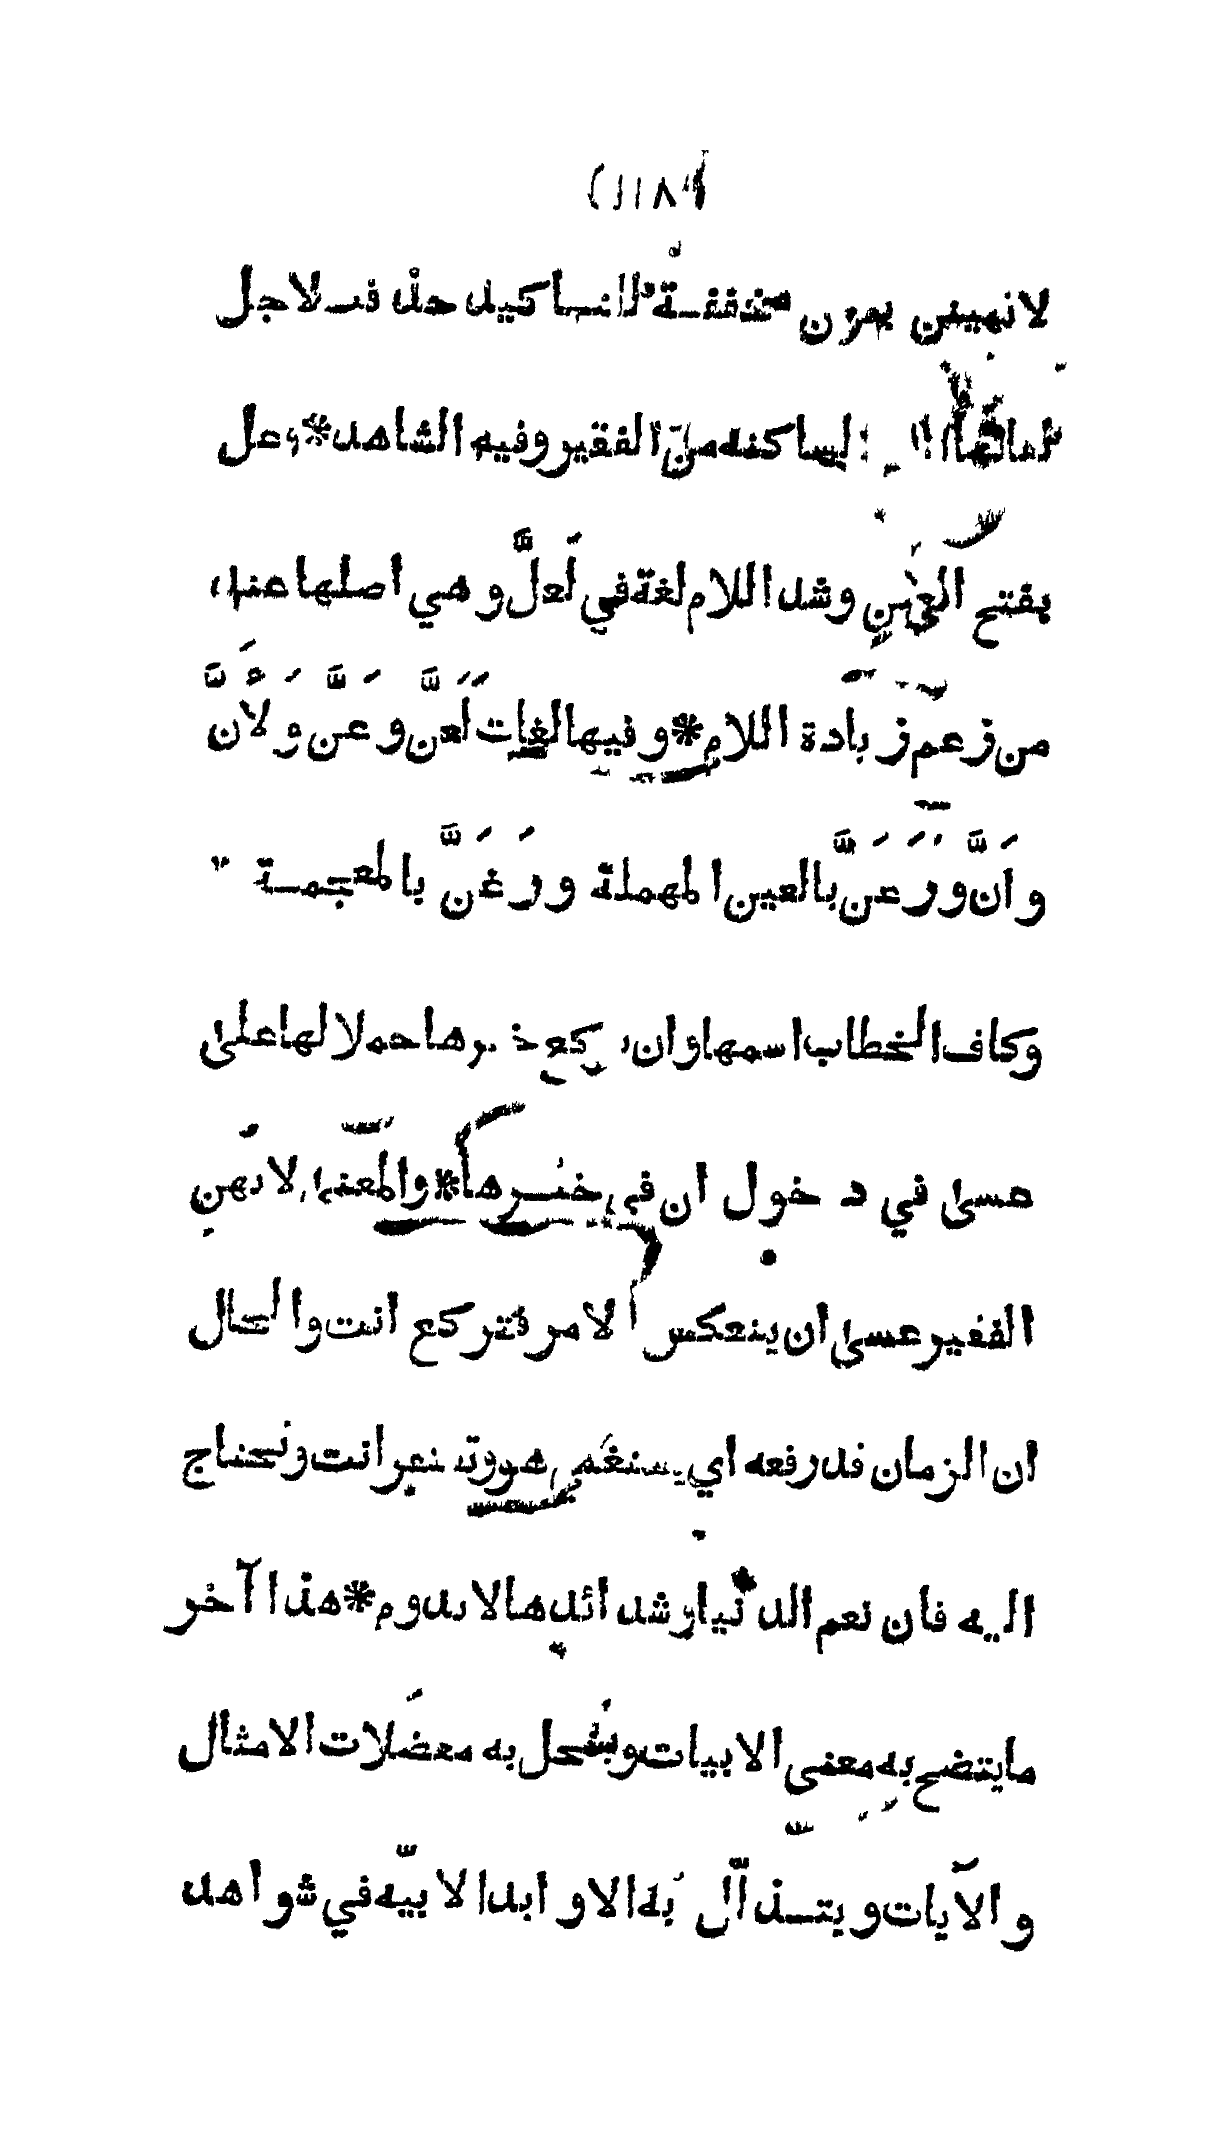 لا تهينن بنون مخففة للتاكيد حذفت لاجل
الساكنه من الفقير وفيه الشاهد * وعل
بفتح العين وشد اللام لغة في لَعلَّ و هي اصلها عند
من زعم زيادة اللام * و فيها لغات لَعَنَّ و عَنَّ وَ لَأَنَّ
و اَنَّ و رَعَنَّ بالعين المهملة و رَغَنَّ بالمعجمة
وكاف الخطاب اسمها وان تركع خبرها حملا لها على
عسى في دخول ان في خبرها * والمعنى لا تهن
الفقير عسى ان ينعكس الامر فتركع انت والحال
ان الزمان قد رفعه اي يستغني هو وتفتقر انت وتحتاج
اليه فان نعم الدنيا وشدائدها لا تدوم * هذا آخر
ما يتضح به معنى الابيات وينحل به معضلات الامثال
و الآيات و يتذلل به الاوابد الابيّه في شواهد